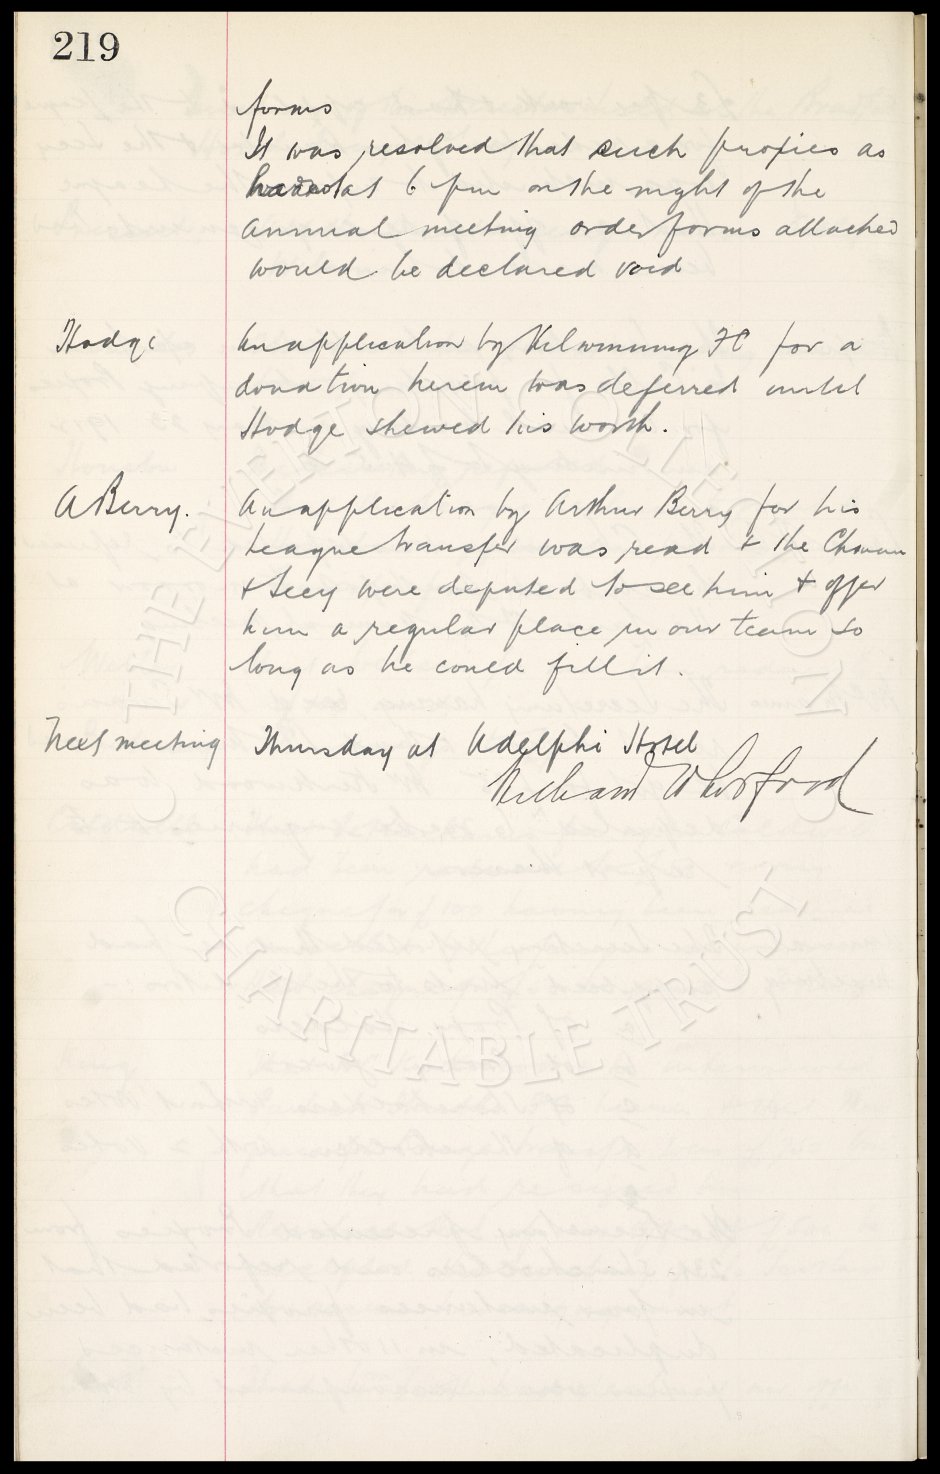 219
forms
It was resolved that such proxies as
had not at 6 pm on the night of the
annual meeting order forms attached
would be declared void
Hodge
An application by Kilwinning FC for a
donation herein was deferred until
Hodge shewed his worth.
A Berry.
An application by Arthur Berry for his
League transfer was read & the Chairman
& Secy were deputed to see him & offer
him a regular place in our team so
long as he could fill it.
Next meeting
Thursday at Adelphi Hotel
THE EVERTON COLLECTION
CHARITABLE TRUST